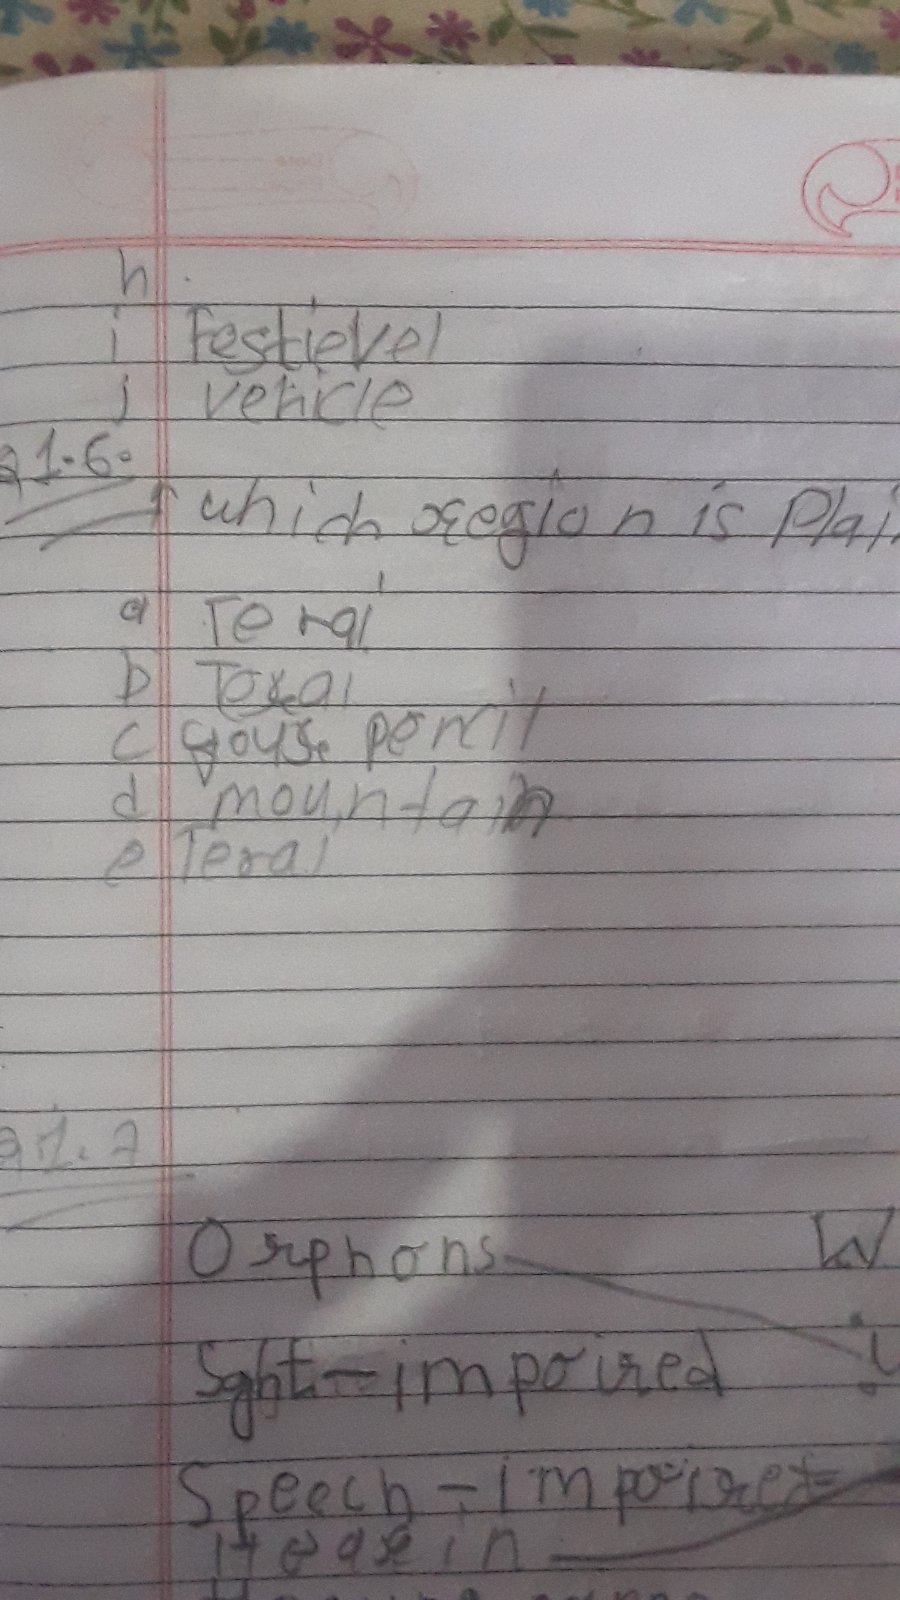 h.
i Festievel
j vehicle
Q1.6.
which region is Plai
a Terai
b
c pencil
d mountain
e Terai
Q1.7
Orphons W
Sght-impoired
Speech-impoired